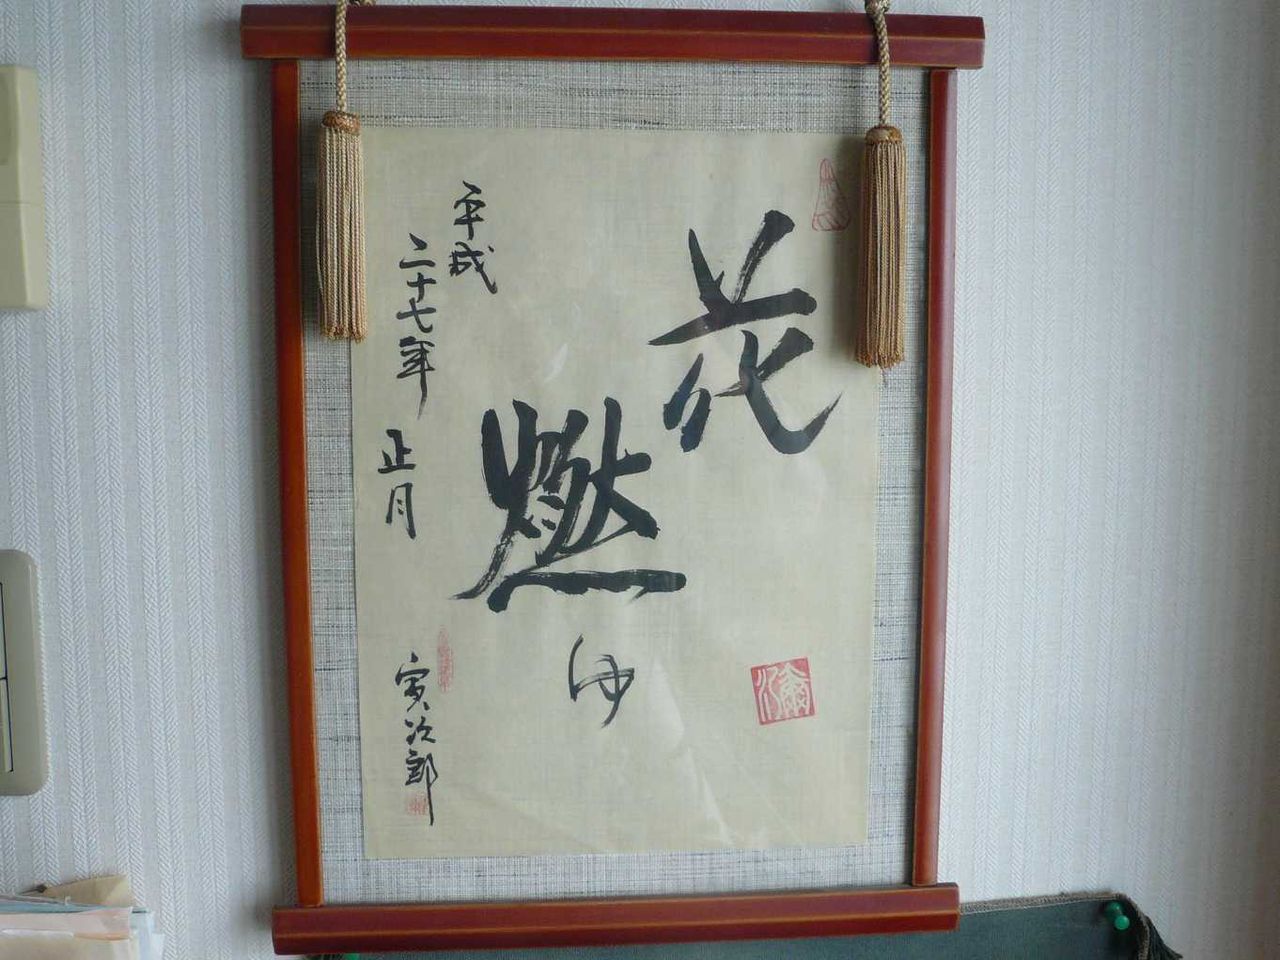 花
燃
ゆ
平成
二十七年
正月
寅次郎